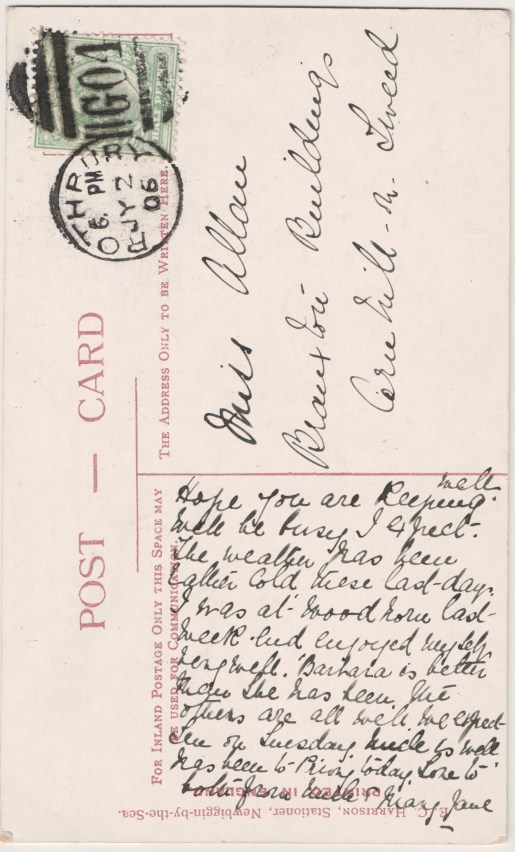 POST — CARD
FOR INLAND POSTAGE ONLY THIS SPACE MAY
BE USED FOR COMMUNICATION.
THE ADDRESS ONLY TO BE WRITTEN HERE.
ROTHBURY
6. PM
JY 2
06
G04
Miss Allan
Branxton Buildings
Cornhill-n-Tweed
Hope you are keeping well
Will be busy I expect.
The weather has been
rather cold these last days.
I was at Woodhorn last
week-end enjoyed myself
very well. Barbara is better
than she has been the
others are all well we expect
on Tuesday Uncle is well
has been to today love to
both from Uncle & Mary Jane
PRINTED IN
E. C. HARRISON, Stationer, Newbiggin-by-the-Sea.